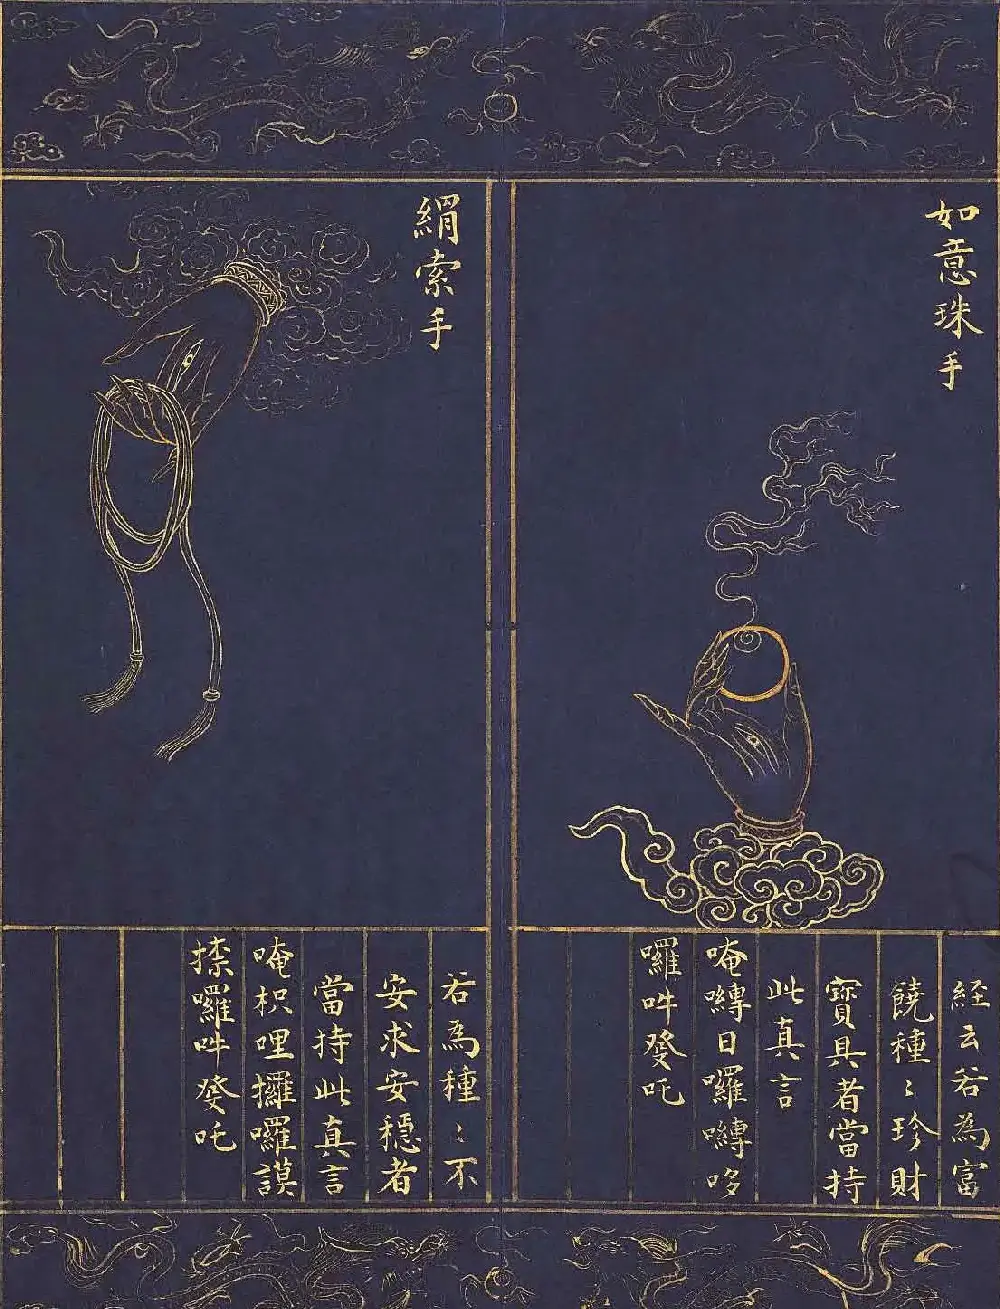 如意珠手
経云若為富
饒種〻珍財
寳具者當持
此真言
唵嚩日囉嚩哆
囉吽癹吒
絹索手
若為種〻不
安求安穏者
當持此真言
唵枳哩攞囉謨
捺囉吽癹吒